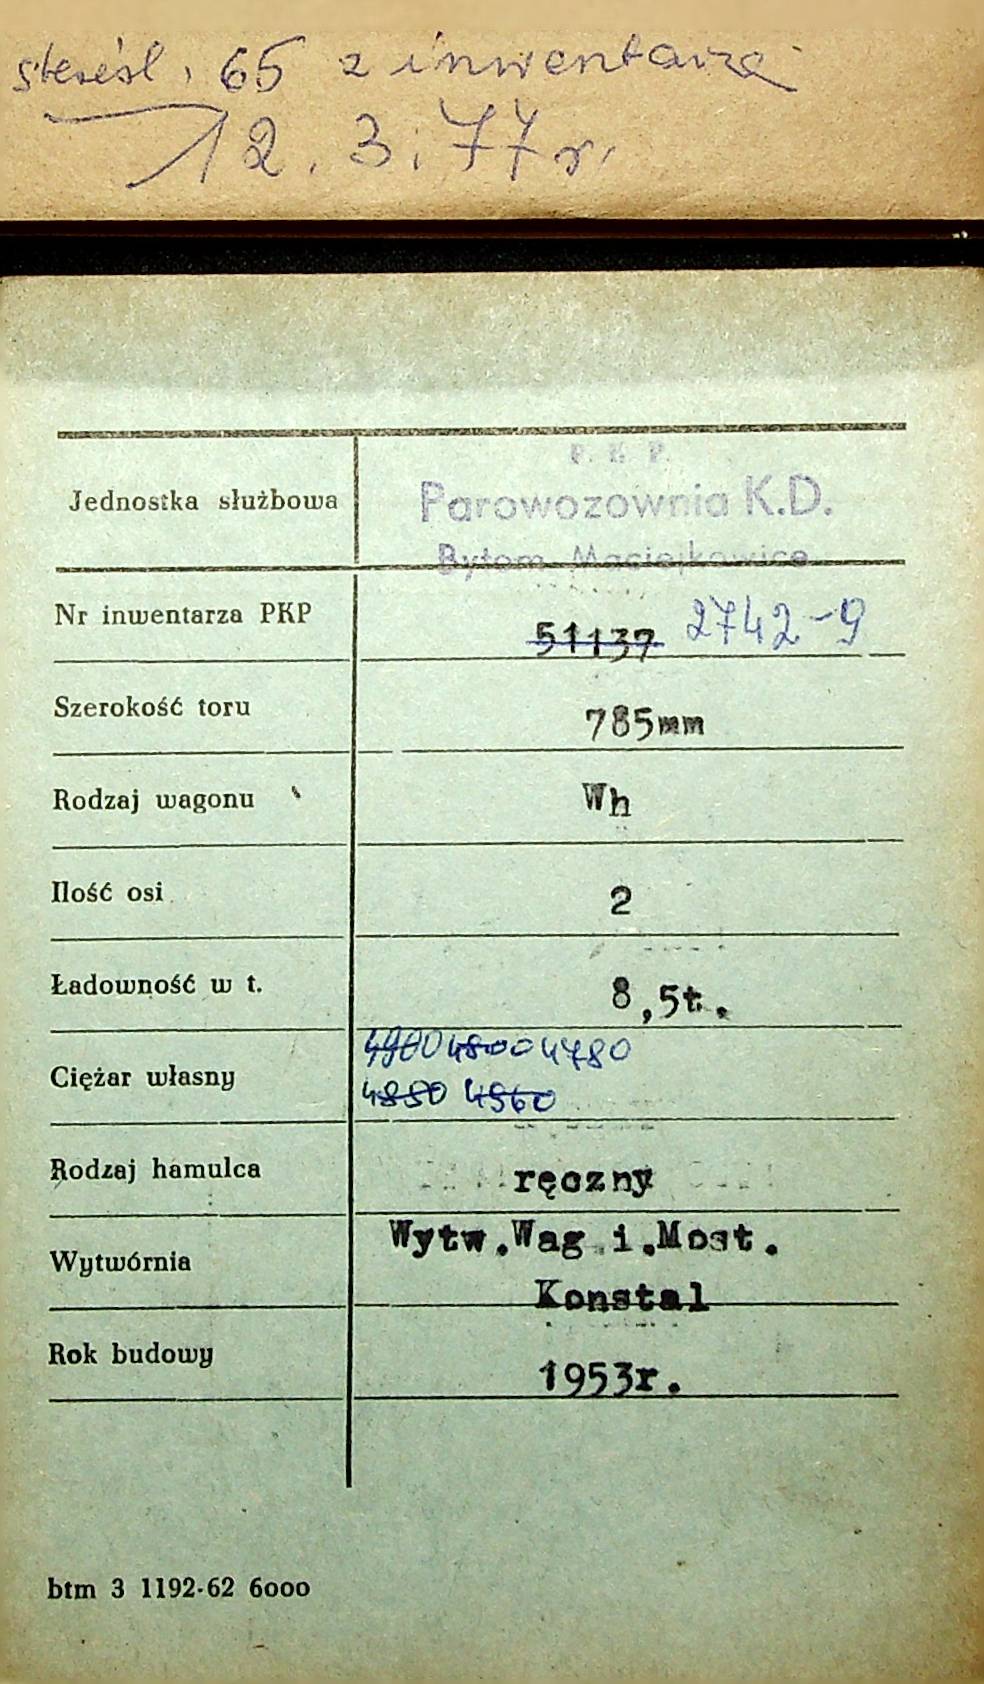 65 z inwentarza
12.3.77r.
P. K. P.
Jednostka służbowa Parowozownia K.D.
Bytom Maciejkowice
Nr inwentarza PKP 51137 2742-9
Szerokość toru 785mm
Rodzaj wagonu Wh
Ilość osi 2
Ładowność w t. 8,5t.
4900 4800 4780
Ciężar własny
4880 4960
Rodzaj hamulca ręczny
Wytw.Wag i.Most.
Wytwórnia
Konstal
Rok budowy 1953r.
btm 3 1192-62 6000